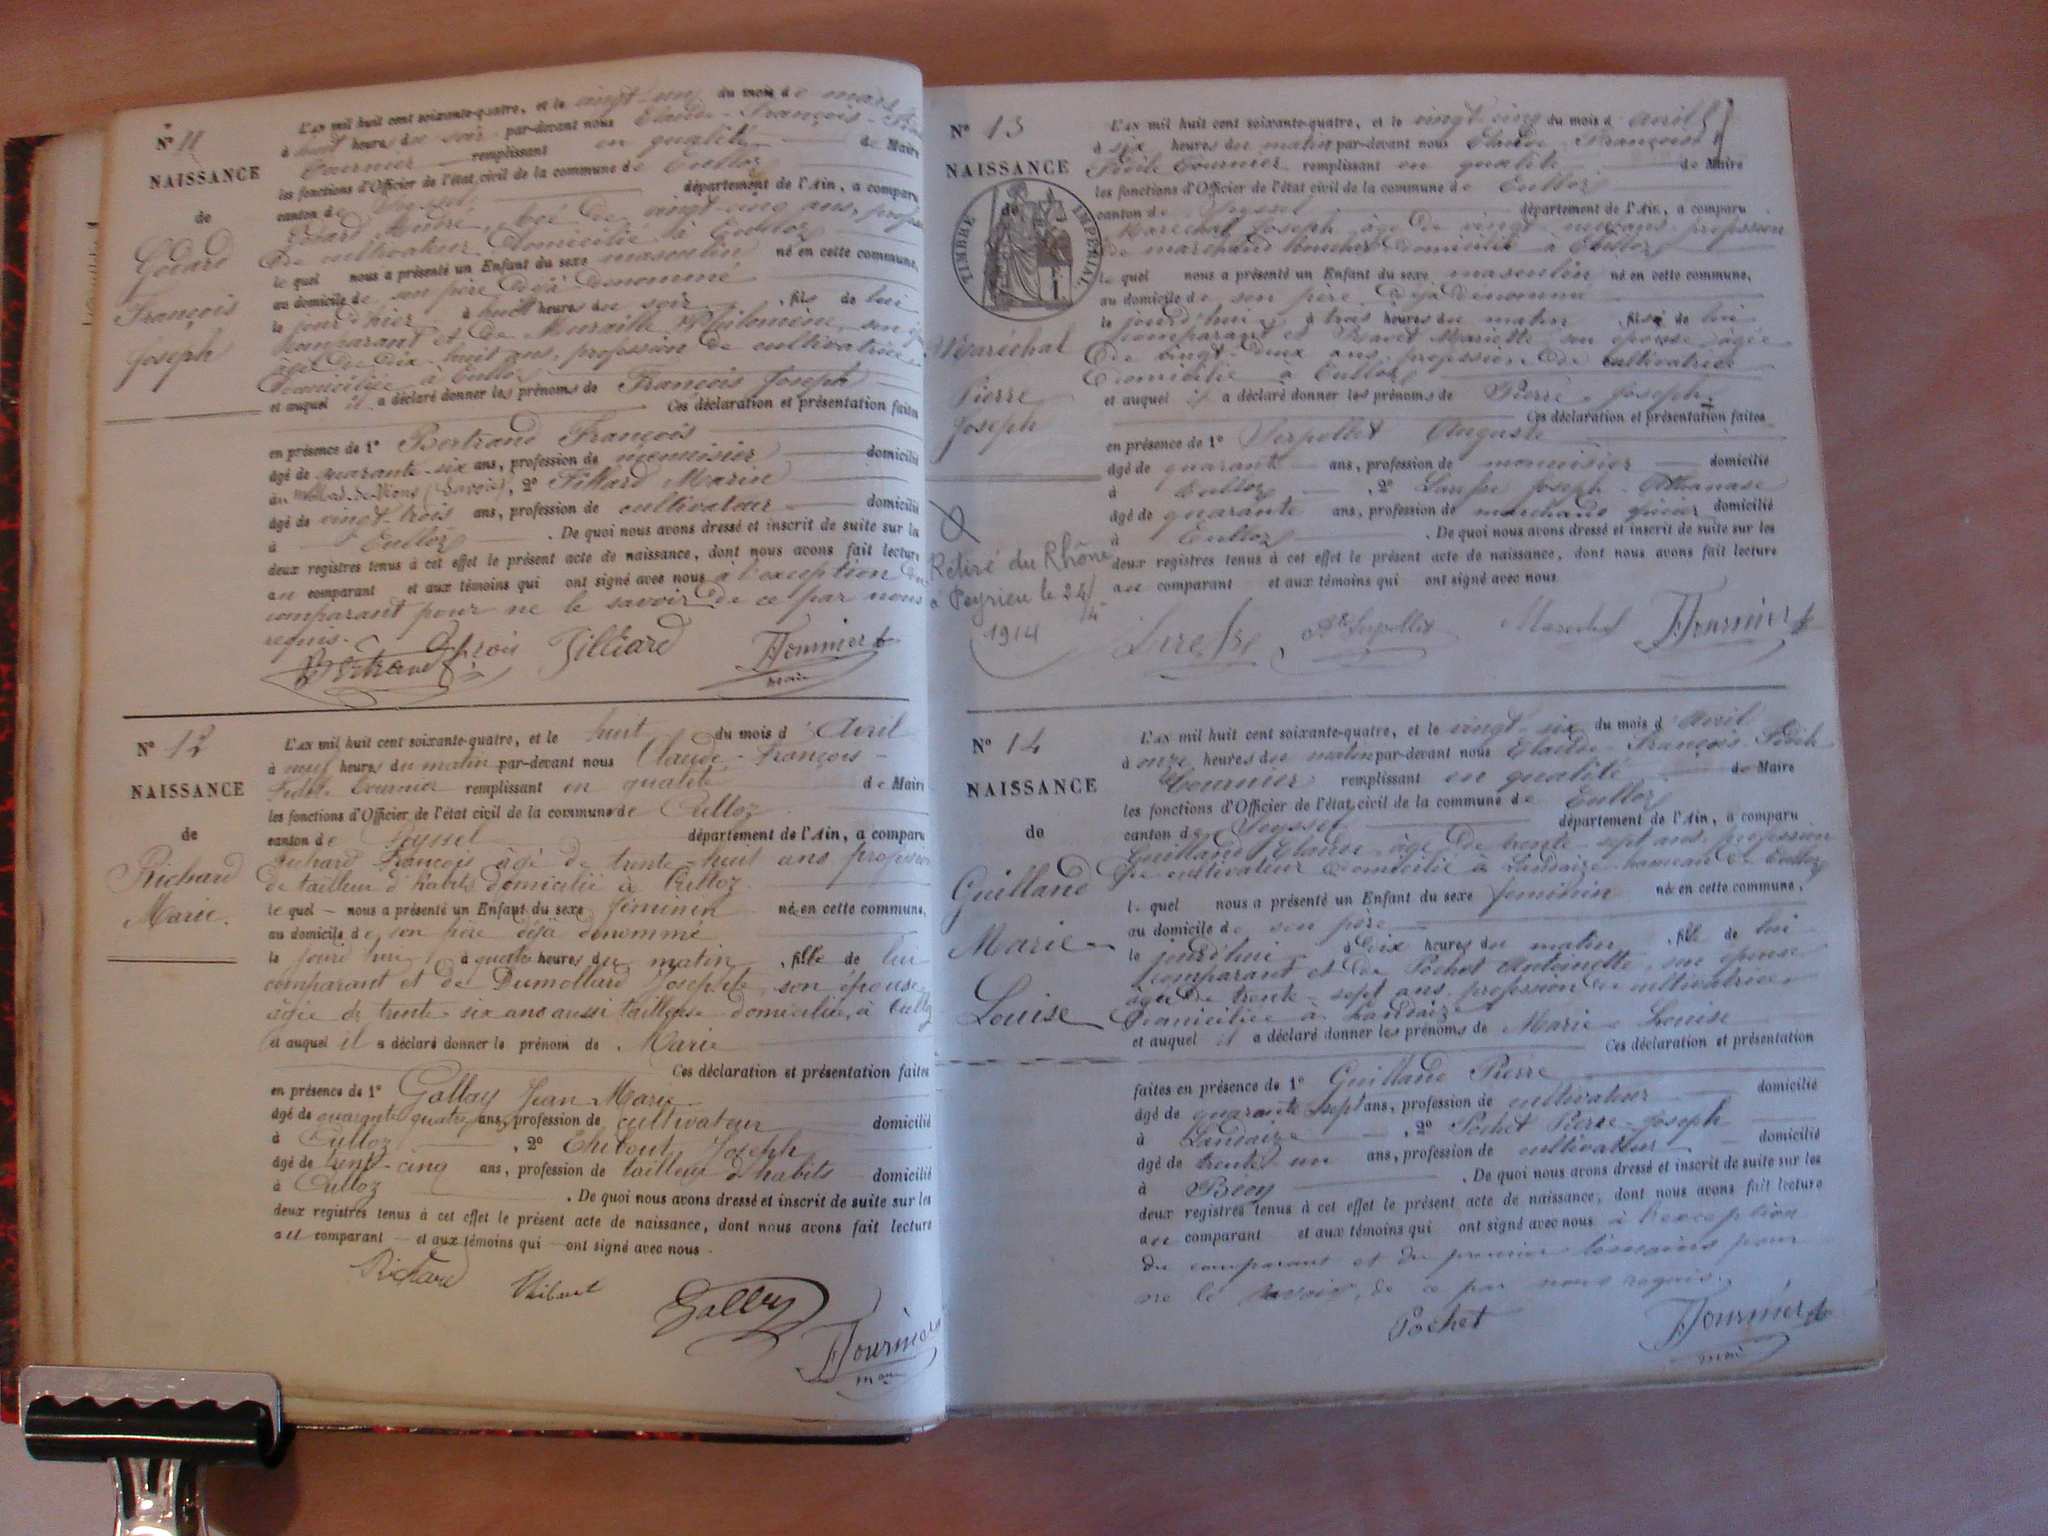 Nº 11
NAISSANCE
de
Godard
François
Joseph
L'AN mil huit cent soixante-quatre, et le vingt-un du mois de mars
à huit heures du soir par-devant nous Claude-François-
Tournier remplissant en qualité de Maire
les fonctions d'Officier de l'état civil de la commune de Culloz
canton de Seyssel département de l'Ain, a comparu
Godard André, âgé de vingt-cinq ans, profes
de cultivateur domicilié à Culloz
le quel nous a présenté un Enfant du sexe masculin né en cette commune,
au domicile de son père déjà dénommé
le jour d'hier à huit heures du soir, fils de lui
comparant et de Muraille Philomène, son
âgée de dix-huit ans, profession de cultivatrice
domiciliée à Culloz
et auquel il a déclaré donner les prénoms de François Joseph
Ces déclaration et présentation faites
en présence de 1º Bertrand François
âgé de quarante-six ans, profession de menuisier domicilié
à Mollard-de-Vions (Savoie), 2º Marin
âgé de vingt-trois ans, profession de cultivateur domicilié
à Culloz. De quoi nous avons dressé et inscrit de suite sur la
deux registres tenus à cet effet le présent acte de naissance, dont nous avons fait lecture
au comparant et aux témoins qui ont signé avec nous à l'exception du
comparant pour ne le savoir de ce par nous
requis.
Bertrand Jilliard FTournier
maire
Nº 12
NAISSANCE
de
Richard
Marie.
L'AN mil huit cent soixante-quatre, et le huit du mois d'Avril
à neuf heures du matin par-devant nous Claude-François-
Fidèle Tournier remplissant en qualité de Maire
les fonctions d'Officier de l'état civil de la commune de Culloz
canton de Seyssel département de l'Ain, a comparu
Richard François âgé de trente-huit ans profession
de tailleur d'habits domicilié à Culloz
le quel nous a présenté un Enfant du sexe féminin né en cette commune,
au domicile de son père déjà dénommé
le jourd'hui à quatre heures du matin, fille de lui
comparant et de Dumollard Josephte, son épouse
âgée de trente-six ans aussi tailleuse domiciliée, à Culloz
et auquel il a déclaré donner le prénom de Marie
Ces déclaration et présentation faites
en présence de 1º Gallay Jean Marie
âgé de quarante quatre ans, profession de cultivateur domicilié
à Culloz, 2º Thibout Joseph
âgé de trente-cinq ans, profession de tailleur d'habits domicilié
à Culloz. De quoi nous avons dressé et inscrit de suite sur les
deux registres tenus à cet effet le présent acte de naissance, dont nous avons fait lecture
au comparant et aux témoins qui ont signé avec nous.
Richard Thibout Gallay
FTournier
maire
Nº 13
NAISSANCE
de
TIMBRE IMPERIAL
Maréchal
Pierre
Joseph
Retiré du Rhône
à Peyrieu le 24/
4
1914
L'AN mil huit cent soixante-quatre, et le vingt-cinq du mois d'Avril
à six heures du matin par-devant nous Claude-François
Fidèle Tournier remplissant en qualité de Maire
les fonctions d'Officier de l'état civil de la commune de Culloz
canton de Seyssel département de l'Ain, a comparu
Maréchal Joseph âgé de vingt-neuf ans profession
de marchand boucher domicilié à Culloz
le quel nous a présenté un Enfant du sexe masculin né en cette commune,
au domicile de son père déjà dénommé
le jourd'hui à trois heures du matin, fils de lui
comparant et Mariette son épouse âgée
de vingt-deux ans, profession de cultivatrice
domiciliée à Culloz
et auquel il a déclaré donner les prénoms de Pierre Joseph.
Ces déclaration et présentation faites
en présence de 1º Serpollet Auguste
âgé de quarante ans, profession de menuisier domicilié
à Culloz, 2º Joseph-Athanase
âgé de quarante ans, profession de marchand épicier domicilié
à Culloz. De quoi nous avons dressé et inscrit de suite sur les
deux registres tenus à cet effet le présent acte de naissance, dont nous avons fait lecture
au comparant et aux témoins qui ont signé avec nous
Serpollet Marechal FTournier
Nº 14
NAISSANCE
de
Guilland
Marie
Louise
L'AN mil huit cent soixante-quatre, et le vingt-six du mois d'Avril
à onze heures du matin par-devant nous Claude-François Fidèle
Tournier remplissant en qualité de Maire
les fonctions d'Officier de l'état civil de la commune de Culloz
canton de Seyssel département de l'Ain, a comparu
Guilland Claude, âgé de trente-sept ans, profession
de cultivateur domicilié à Landaize hameau de Culloz
le quel nous a présenté un Enfant du sexe féminin né en cette commune,
au domicile de son père
le jourd'hui à dix heures du matin, fille de lui
comparant et de Pochet Antoinette, son épouse
âgée de trente-sept ans, profession de cultivatrice
domiciliée à Landaize
et auquel il a déclaré donner les prénoms de Marie Louise
Ces déclaration et présentation
faites en présence de 1º Guilland Pierre
âgé de quarante sept ans, profession de cultivateur domicilié
à Landaize, 2º Pochet Pierre-Joseph
âgé de trente-un ans, profession de cultivateur domicilié
à Béon. De quoi nous avons dressé et inscrit de suite sur les
deux registres tenus à cet effet le présent acte de naissance, dont nous avons fait lecture
au comparant et aux témoins qui ont signé avec nous à l'exception
du comparant et du premier témoins pour
ne le savoir, de ce par nous requis.
Pochet FTournier
maire